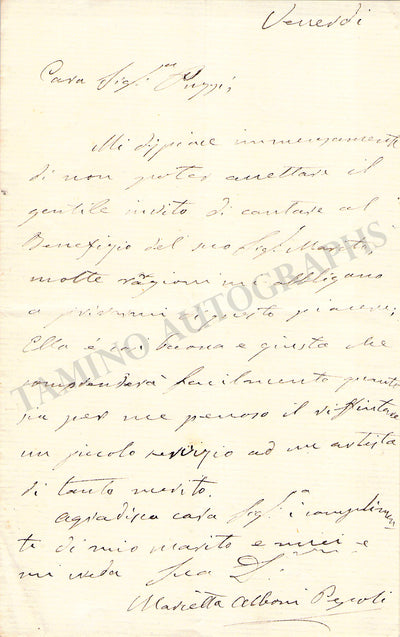 Venerdi
Cara Sig.ra Puzzi,
Mi dispiace immensamente
di non poter accettare il
gentile invito di cantare al
Benefizio del suo Sig.r Marito
molte ragioni mi obbligano
a privarmi di questo piacere;
Ella é sì buona e giusta che
comprenderà facilmente quanto
sia per me penoso il riffiutare
un piccolo servizio ad un artista
di tanto merito.
Agradisca cara Sig.ra i complimen
ti di mio marito e miei e
mi creda Sua
Marietta Alboni Pepoli
TAMINO AUTOGRAPHS